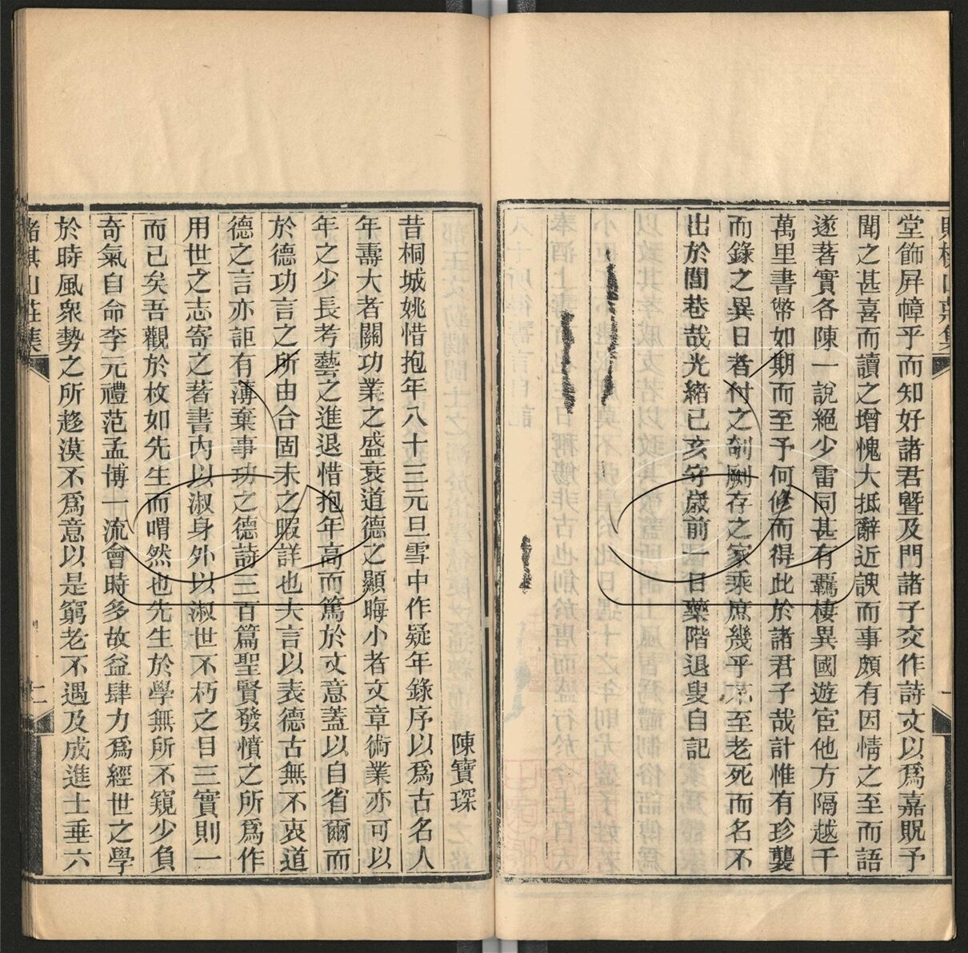 堂飾屏幛乎而知好諸君曁及門諸子交作詩文以爲嘉貺予
聞之甚喜而讀之增愧大抵辭近諛而事頗有因情之至而語
遂著實各陳一說絕少雷同甚有羈棲異國遊宦他方隔越千
萬里書幣如期而至予何修而得此於諸君子哉計惟有珍襲
而錄之異日者付之剞劂存之家乘庶幾乎不至老死而名不
出於閭巷哉光緒己亥守歲前一日藥階退叟自記
陳寶琛
昔桐城姚惜抱年八十三元旦雪中作疑年錄序以爲古名人
年壽大者關功業之盛衰道德之顯晦小者文章術業亦可以
年之少長考藝之進退惜抱年高而篤於文意蓋以自省爾而
於德功言之所由合固未之暇詳也夫言以表德古無不衷道
德之言亦詎有薄棄事功之德詩三百篇聖賢發憤之所爲作
用世之志寄之著書內以淑身外以淑世不朽之目三實則一
而已矣吾觀於枚如先生而喟然也先生於學無所不窺少負
奇氣自命李元禮范孟博一流會時多故益肆力爲經世之學
於時風衆勢之所趨漠不爲意以是窮老不遇及成進士垂六
賭棋山莊集
二